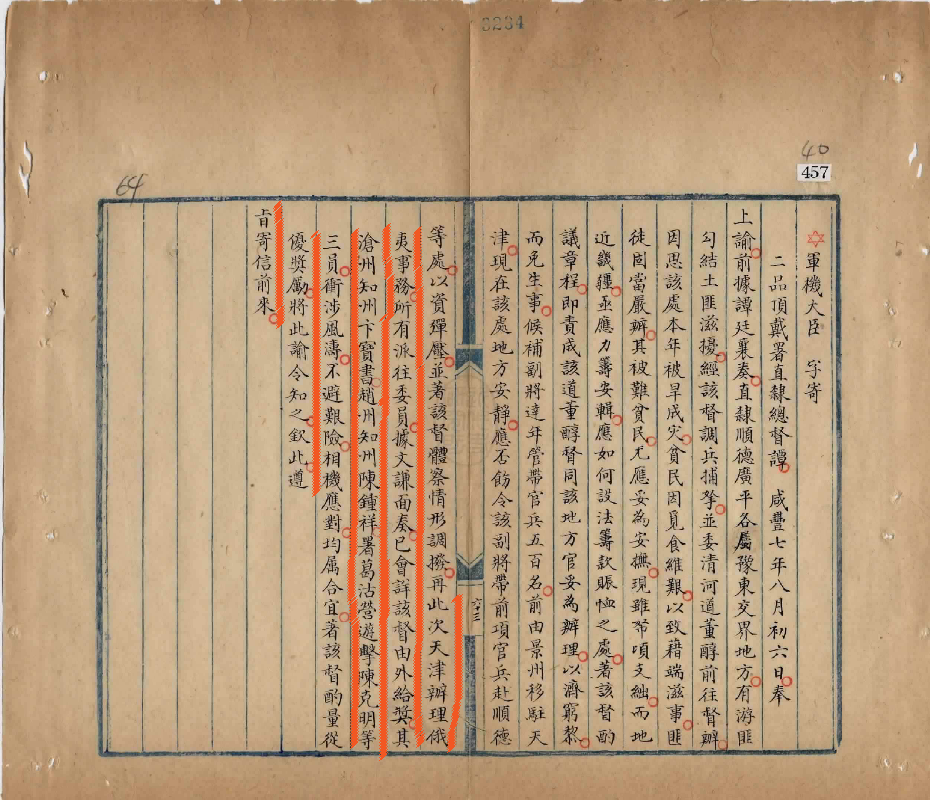 3234
40
457
64
軍機大臣 字寄
二品頂戴署直隸總督譚 咸豐七年八月初六日奉
上諭前據譚廷襄奏直隸順德廣平各屬豫東交界地方有游匪
勾結土匪滋擾經該督調兵捕拏並委清河道董醇前往督辦
因思該處本年被旱成災貧民因覓食維艱以致藉端滋事匪
徒固當嚴辦其被難貧民尤應妥為安撫現雖帑項支絀而地
近畿疆亟應力籌安輯應如何設法籌款賑恤之處著該督酌
議章程即責成該道董醇督同該地方官妥為辦理以濟窮黎
而免生事候補副將達年管帶官兵五百名前由景州移駐天
津現在該處地方安靜應否飭令該副將帶前項官兵赴順德
六十三
等處以資彈壓並著該督體察情形調撥再此次天津辦理俄
夷事務所有派往委員據文謙面奏已會詳該督由外給獎其
滄州知州卞寶書趙州知州陳鍾祥署葛沽營遊擊陳克明等
三員衝涉風濤不避艱險相機應對均屬合宜著該督酌量從
優獎勵將此諭令知之欽此遵
旨寄信前來